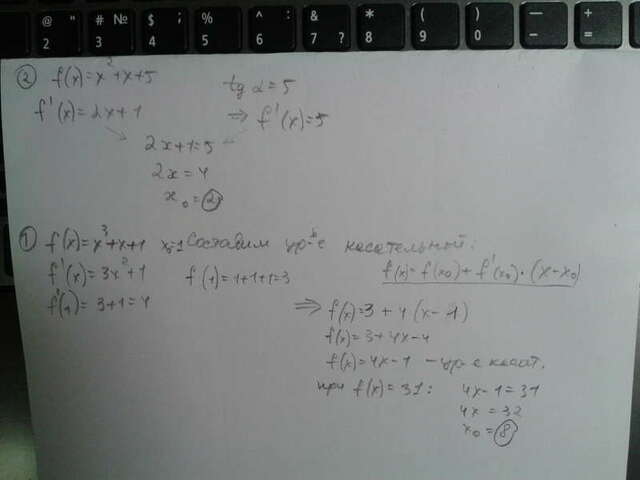 @ " # № $ ; % ^ : & ? * ( ) — + =
2 3 4 5 6 7 ? 8 9 0 -
② f(x)=x²+x+5 tg α=5
f'(x)=2x+1 ⇒ f'(x)=5
2x+1=5
2x=4
x₀=②
① f(x)=x³+x+1 x₀=1 Составим ур-е касательной:
f'(x)=3x²+1 f(1)=1+1+1=3 f(x)=f(x₀)+f'(x₀)·(x-x₀)
f'(1)=3+1=4 ⇒ f(x)=3+4(x-1)
f(x)=3+4x-4
f(x)=4x-1 -ур-е касат.
при f(x)=31: 4x-1=31
4x=32
x₀=⑧